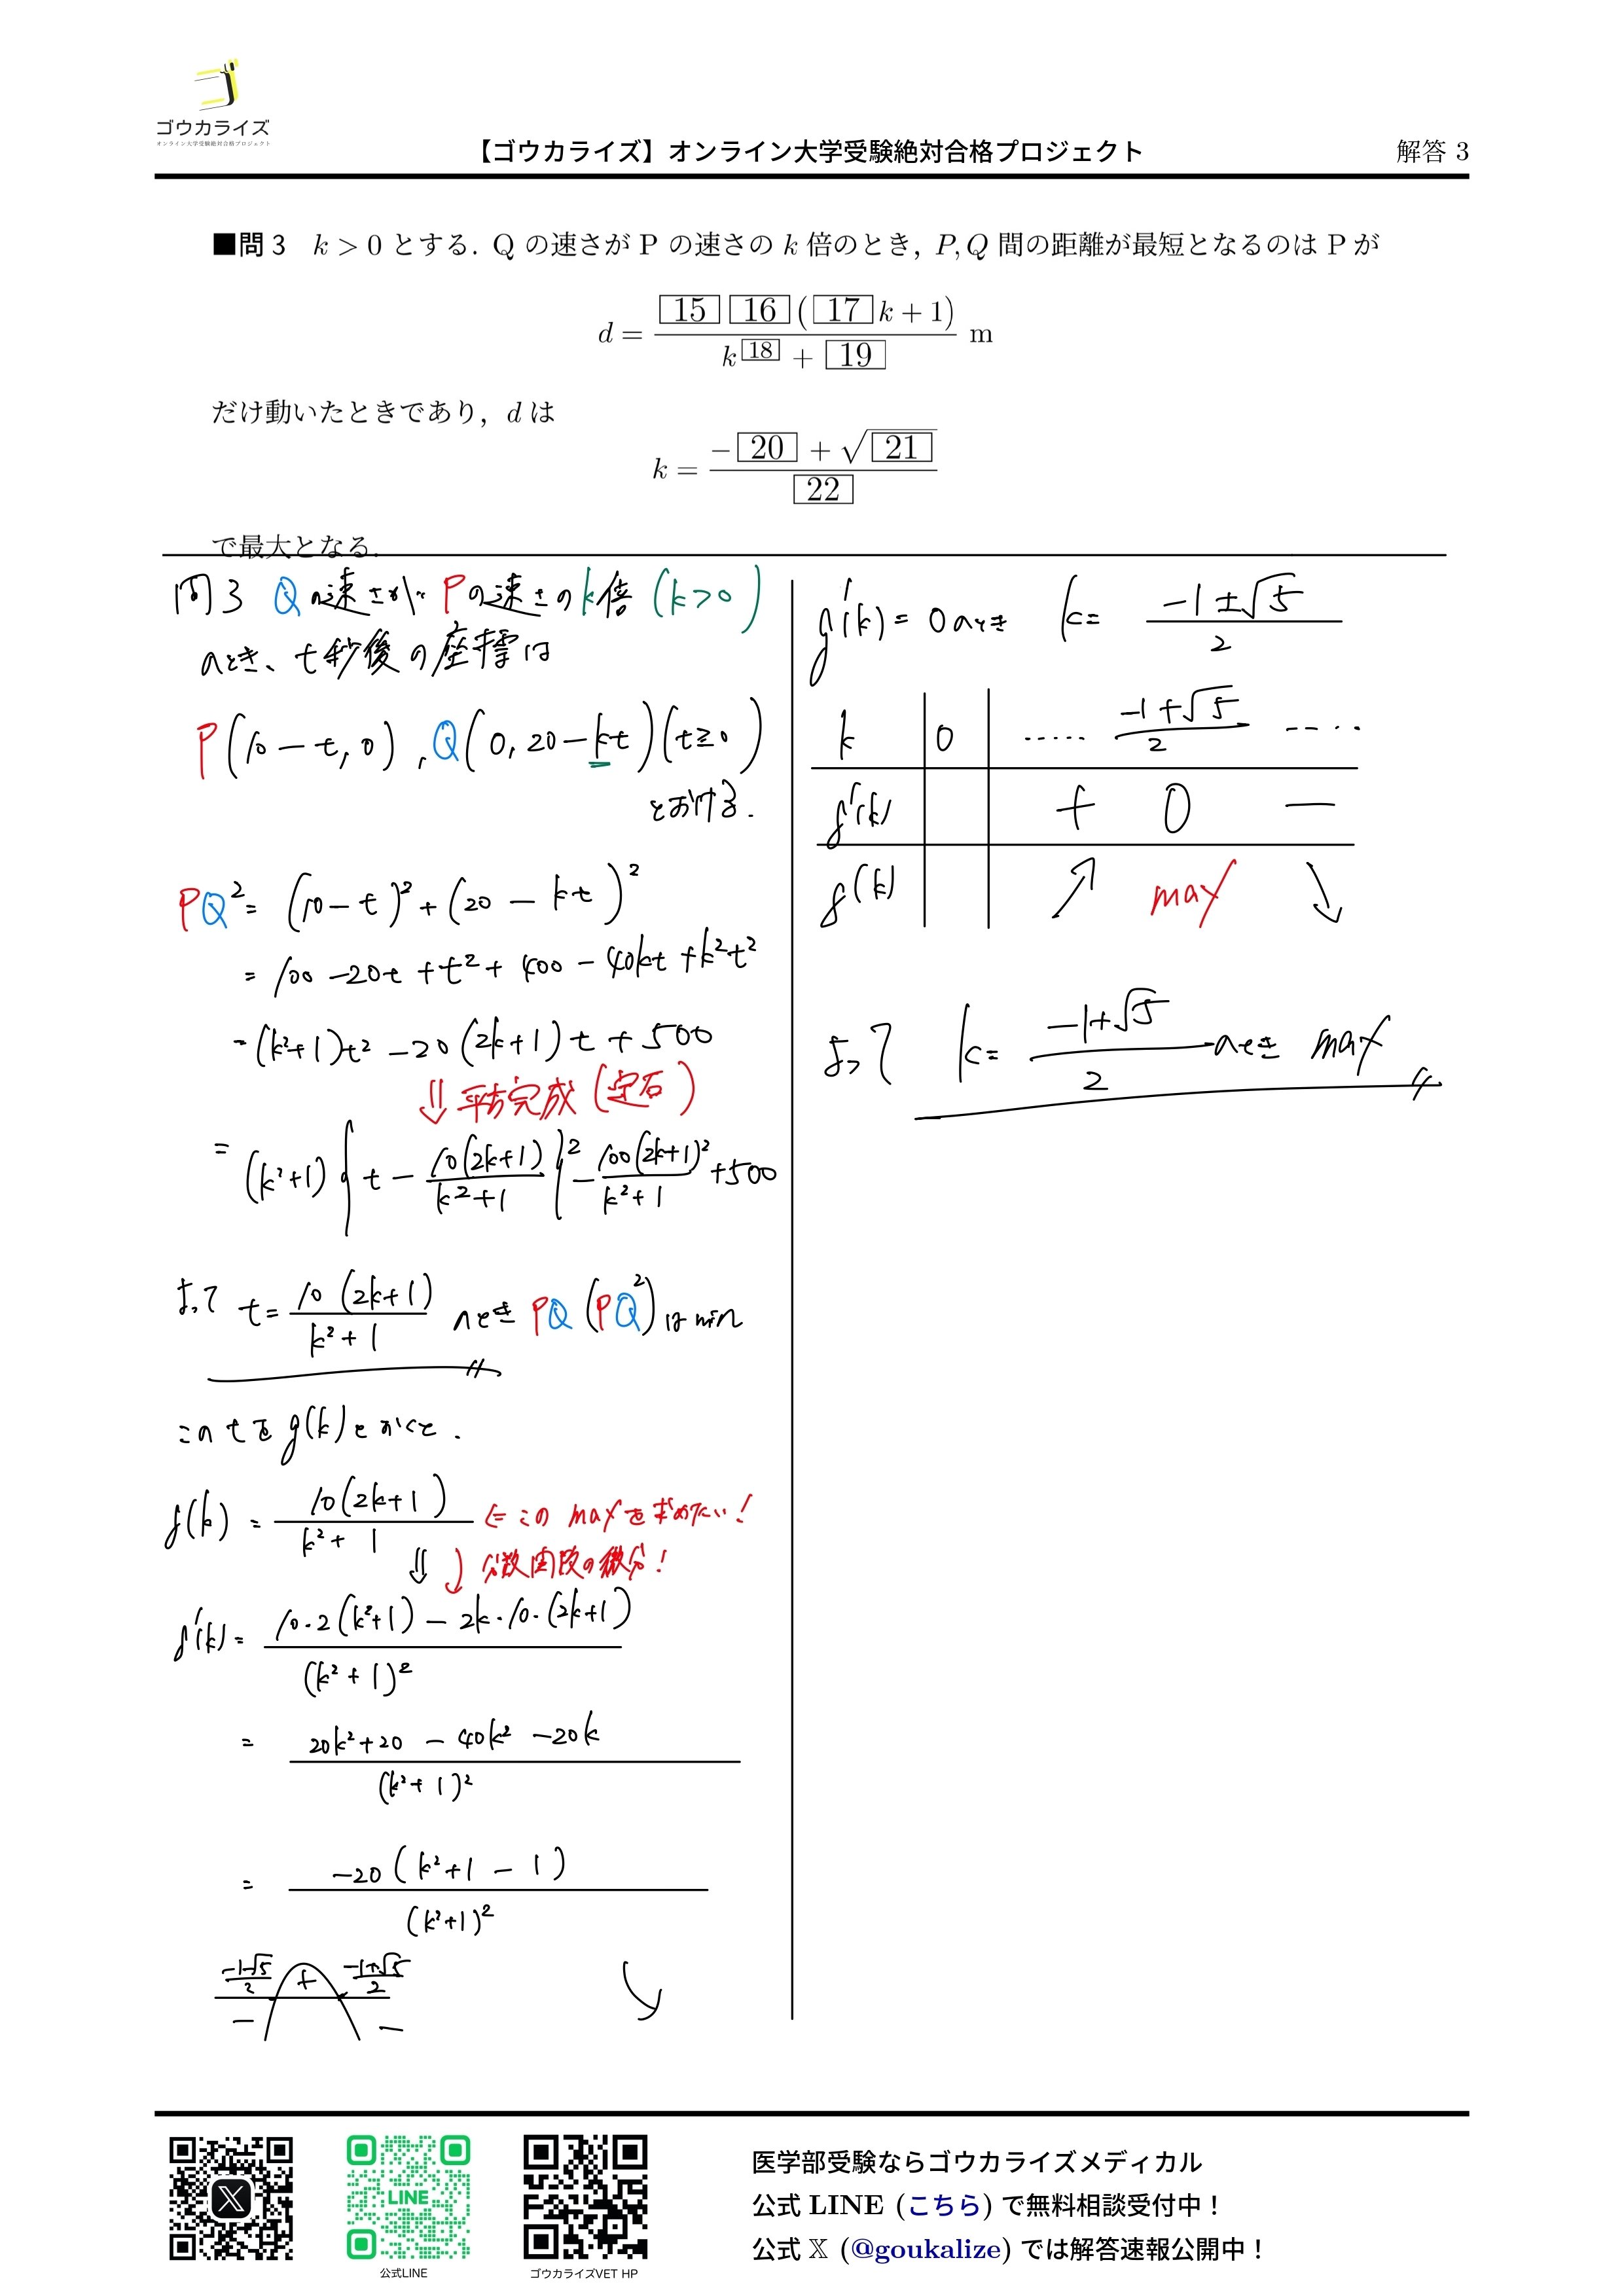 ゴウカライズ
オンライン大学受験絶対合格プロジェクト
【ゴウカライズ】オンライン大学受験絶対合格プロジェクト
解答 3
■問 3 k > 0 とする. Q の速さが P の速さの k 倍のとき, P, Q 間の距離が最短となるのは P が
d = [15] [16] ([17] k + 1) / (k^[18] + [19]) m
だけ動いたときであり, d は
k = (−[20] + √[21]) / [22]
で最大となる.
問3 Qの速さが Pの速さのk倍 (k>0)
のとき、t秒後の座標は
P(10−t, 0), Q(0, 20−kt) (t≧0)
とおける.
PQ² = (10−t)² + (20−kt)²
= 100 −20t + t² + 400 − 40kt + k²t²
= (k²+1)t² −20(2k+1)t + 500
⇓ 平方完成 (定石)
= (k²+1){t − 10(2k+1)/(k²+1)}² − 100(2k+1)²/(k²+1) + 500
よって t = 10(2k+1)/(k²+1) のとき PQ (PQ²) は min
このtを g(k) とおくと.
g(k) = 10(2k+1)/(k²+1) ⇐ この max を求めたい!
⇓ 分数関数の微分!
g'(k) = (10・2(k²+1) − 2k・10・(2k+1))/(k²+1)²
= (20k²+20 − 40k² −20k)/(k²+1)²
= −20(k²+1 − 1)/(k²+1)²
(−1−√5)/2 + (−1+√5)/2
− −
g'(k) = 0 のとき k = (−1±√5)/2
k 0 ‥‥ (−1+√5)/2 ‥‥
g'(k) + 0 −
g(k) ↗ max ↘
よって k = (−1+√5)/2 のとき max
LINE
公式LINE
ゴウカライズVET HP
医学部受験ならゴウカライズメディカル
公式 LINE (こちら) で無料相談受付中!
公式 𝕏 (@goukalize) では解答速報公開中!